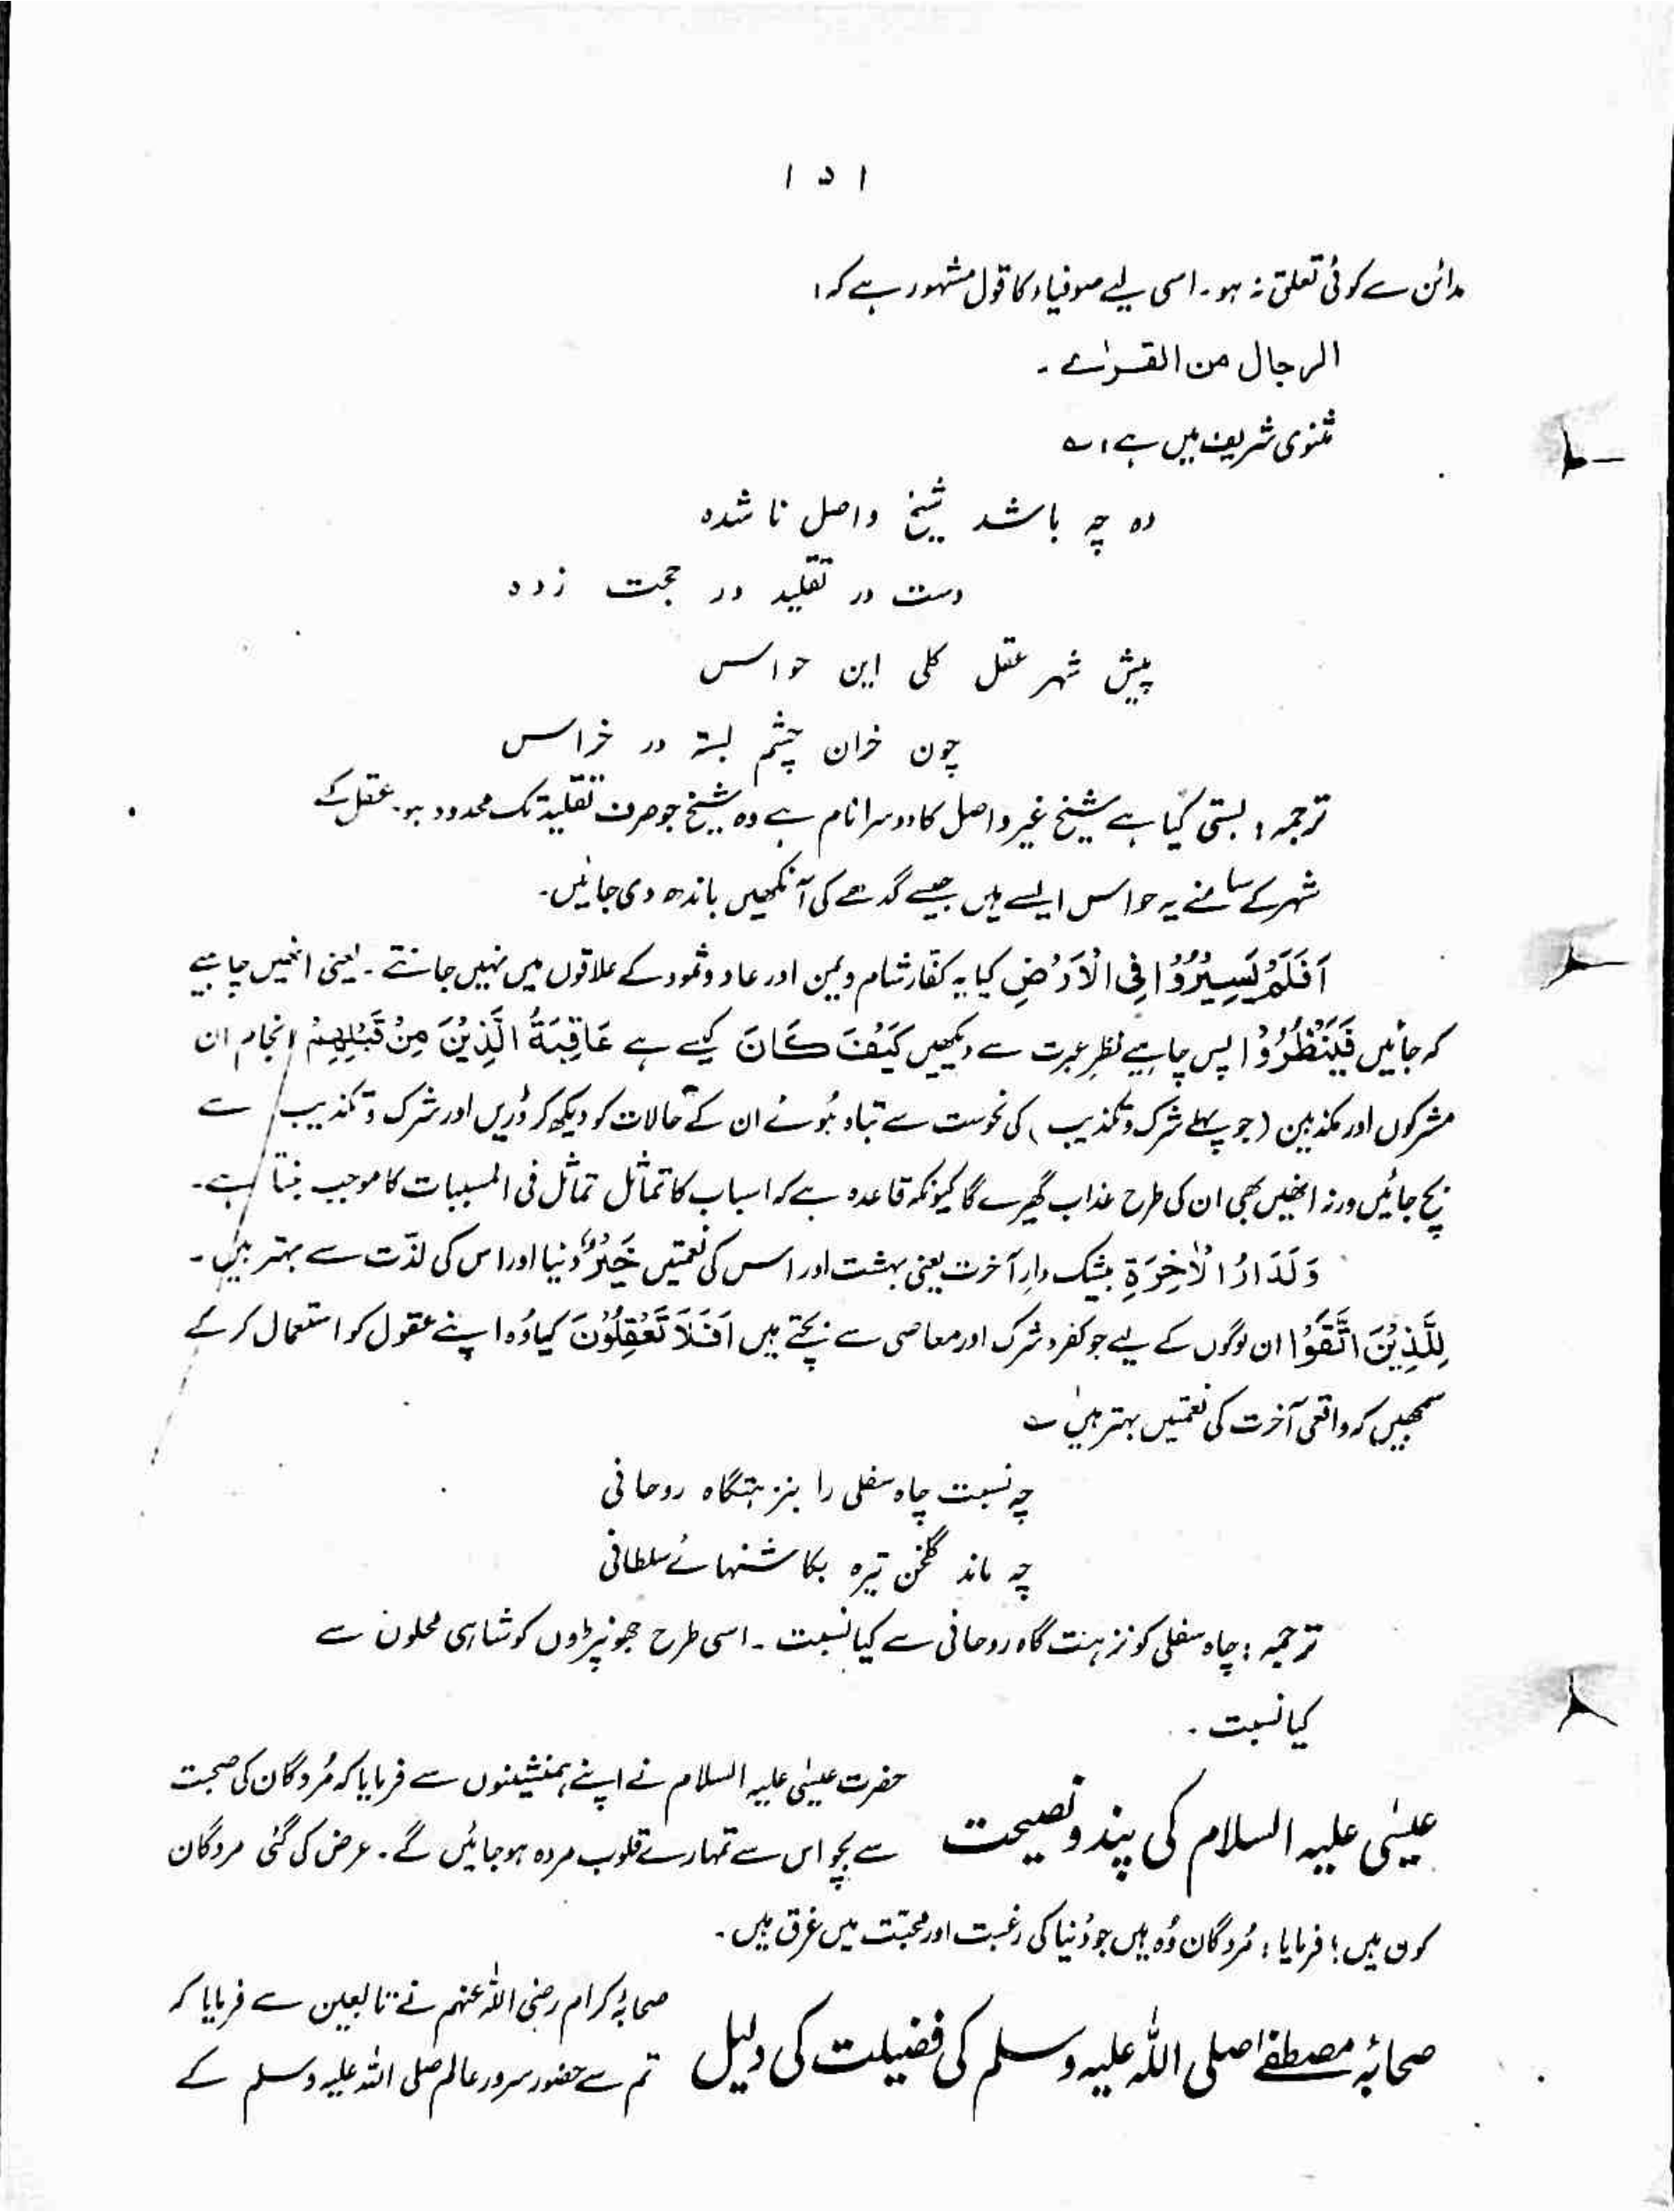 ۱۵۱
مدائن سے کوئی تعلق نہ ہو۔ اسی لیے صوفیاء کا قول مشہور ہے کہ:
الرجال من القرٰے ۔
مثنوی شریف میں ہے: ؎
دہ چہ باشد شیخ واصل نا شدہ
دست در تقلید در حجت زدہ
پیش شہر عقل کلی این حواس
چون خران چشم بستہ در خراس
ترجمہ: بستی کیا ہے شیخ غیر واصل کا دوسرا نام ہے وہ شیخ جو صرف تقلید تک محدود ہو۔ عقل کے
شہر کے سامنے یہ حواس ایسے ہیں جیسے گدھے کی آنکھیں باندھ دی جائیں۔
اَفَلَمْ یَسِیْرُوْا فِی الْاَرْضِ کیا یہ کفار شام و یمن اور عاد و ثمود کے علاقوں میں نہیں جانتے۔ یعنی انھیں چاہیے
کہ جائیں فَیَنْظُرُوْا پس چاہیے نظرِ عبرت سے دیکھیں کَیْفَ کَانَ کیسے ہے عَاقِبَۃُ الَّذِیْنَ مِنْ قَبْلِھِمْ انجام ان
مشرکوں اور مکذبین (جو پہلے شرک و تکذیب) کی نحوست سے تباہ ہُوئے ان کے حالات کو دیکھ کر ڈریں اور شرک و تکذیب سے
بچ جائیں ورنہ انھیں بھی ان کی طرح عذاب گھیرے گا کیونکہ قاعدہ ہے کہ اسباب کا تماثل تماثل فی المسببات کا موجب بنتا ہے۔
وَلَدَارُ الْاٰخِرَۃِ بیشک دارِ آخرت یعنی بہشت اور اس کی نعمتیں خَیْرٌ دُنیا اور اس کی لذّت سے بہتر ہیں۔
لِلَّذِیْنَ اتَّقَوْا ان لوگوں کے لیے جو کفر و شرک اور معاصی سے بچتے ہیں اَفَلَا تَعْقِلُوْنَ کیا وُہ اپنے عقول کو استعمال کر کے
سمجھیں کہ واقعی آخرت کی نعمتیں بہتر ہیں ؎
چہ نسبت چاہ سفلی را بنزہتگاہ روحانی
چہ ماند گلخن تیرہ بکاشنہائے سلطانی
ترجمہ: چاہ سفلی کو نزہت گاہ روحانی سے کیا نسبت ۔ اسی طرح جھونپڑوں کو شاہی محلوں سے
کیا نسبت ۔
عیسٰی علیہ السلام کی پند و نصیحت
حضرت عیسٰی علیہ السلام نے اپنے ہمنشینوں سے فرمایا کہ مُردگان کی صحبت
سے بچو اس سے تمہارے قلوب مردہ ہو جائیں گے۔ عرض کی گئی مردگان
کون ہیں؛ فرمایا: مُردگان وُہ ہیں جو دُنیا کی رغبت اور محبّت میں غرق ہیں۔
صحابۂ مصطفےٰ صلی اللہ علیہ وسلم کی فضیلت کی دلیل
صحابۂ کرام رضی اللہ عنہم نے تابعین سے فرمایا کہ
تم سے حضور سرور عالم صلی اللہ علیہ وسلم کے